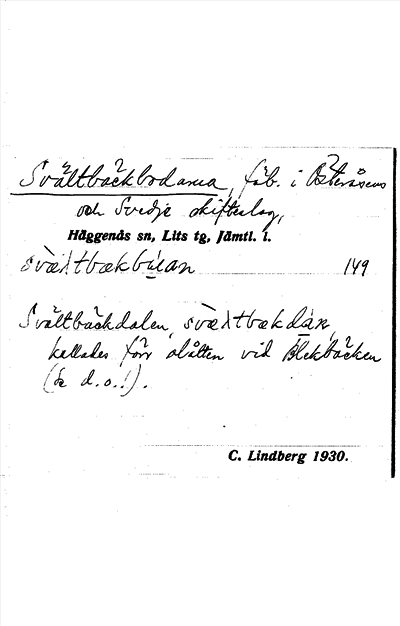 Svältbäckbodarna, fäb. i Österåsens
och Svedje skifteslag,
Häggenås sn, Lits tg, Jämtl. l.
svæltbækbúan 149
Svältbäckdalen, svæltbækdán,
kallades förr slåtten vid Blekbäcken
(se d.o.!).
C. Lindberg 1930.